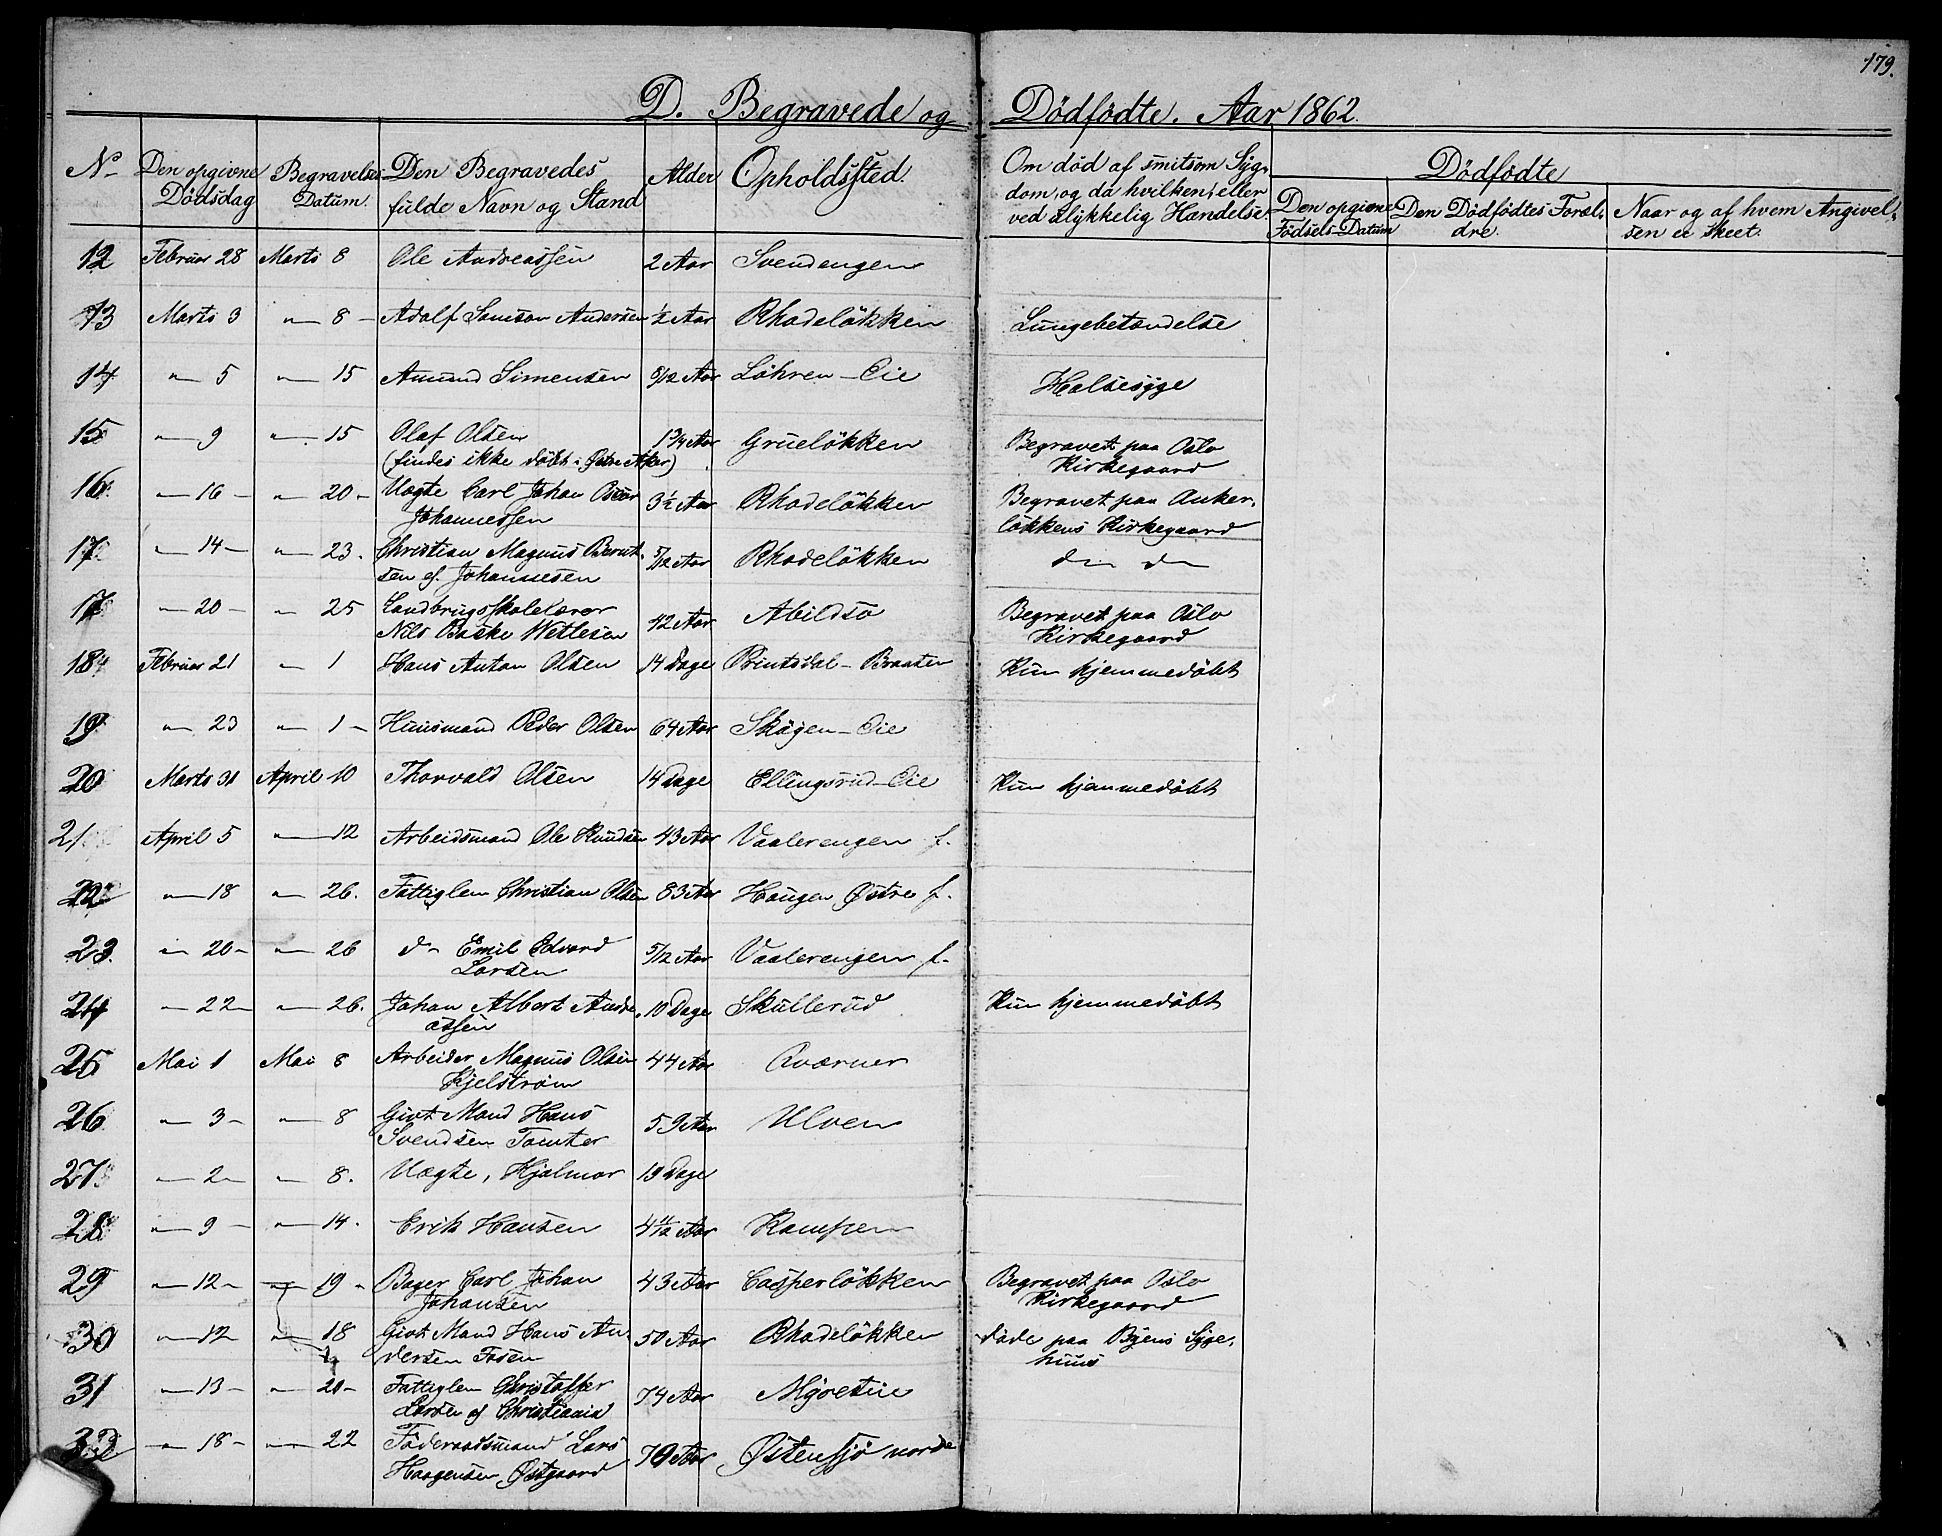 179.
D. Begravede og Dödfödte. Aar 1862.
No
Den opgivne Dödsdag
Begravelses Datum.
Den Begravedes fulde Navn og Stand
Alder
Opholdssted.
Om död af smitsom Sygdom, og da hvilken, eller ved ulykkelig Hændelse.
Dödfödte
Den opgivne Födsels-Datum
Den Dödfödtes Forældre.
Naar og af hvem Angivelsen er skeet.
12 Februar 28 Marts 8 Ole Andreassen 2 Aar Svendengen
13 Marts 3 " 8 - Adolf Samson Andersen 1/2 Aar Rhodelökken Lungebetændelse
14 " 5 " 15 Amund Simensen 5/12 Aar Löhren-Eie Halsesyge
15 " 9 " 15 Olaf Olsen 1 3/4 Aar Gruelökken Begravet paa Oslo
(findes ikke döbt i Östre Aker) Kirkegaard
16 " 16 - " 20 - Uægte Carl Johan Oscar 3 1/2 Aar Rhodelökken Begravet paa Anker-
Johannessen lökkens Kirkegaard
17 " 14 - " 23. Christian Magnus Bernt- 5/12 Aar Rhodelökken do do
sen ef. Johannesen
17 " 20 - " 25 Landbrugsskolelærer Abildsö Begravet paa Oslo
Nils Wettesen 42 Aar Kirkegaard
18 Februar 21 " 1 Hans Anton Olsen 14 Dage Printsdal-Braaten Kun hjemmedöbt
19 " 23 " 1 - Huusmand Peder Olsen 64 Aar Skögen-Eie
20 Marts 31 April 10 Thorvald Olsen 14 Dage Ellingsrud-Eie Kun hjemmedöbt
21 April 5 " 12 Arbeidsmand Ole Knudsen 43 Aar Vaalerengen f.
22 " 18 " 26. Fattiglem Christian Olsen 83 Aar Haugen Østre f.
23. " 20 - " 26 d- Emil Edvard 5/12 Aar Vaalerengen f.
Larsen
24 " 22 - " 26. Johan Albert Andre- 10 Dage Skullerud Kun hjemmedöbt
assen
25 Mai 1 Mai 8 Arbeider Magnus Olsen 44 Aar Qværner
Kjelström
26 " 3 - " 8 Givt Mand Hans 59 Aar Ulven
Svendsen Tomter
27 " 2 - " 8. Uægte, Hjalmar 19 Dage
28 " 9 - " 14. Erik Hansen 4 11/12 Aar Kampen
29 " 12 - " 19 - Bager Carl Johan 43 Aar Casperlökken Begravet paa Oslo
Johansen Kirkegaard
30 " 12 " 18 Givt Mand Hans An- 50 Aar Rhodelökken döde paa Byens Syge-
dersen Fosen huus
31 " 13 - " 20 - Fattiglem Christoffer 74 Aar
Larsen af Christiania
32 " 18 - " 22 Föderaadsmand Lars 79 Aar Østensjö nordre
Haagensen Østgaard